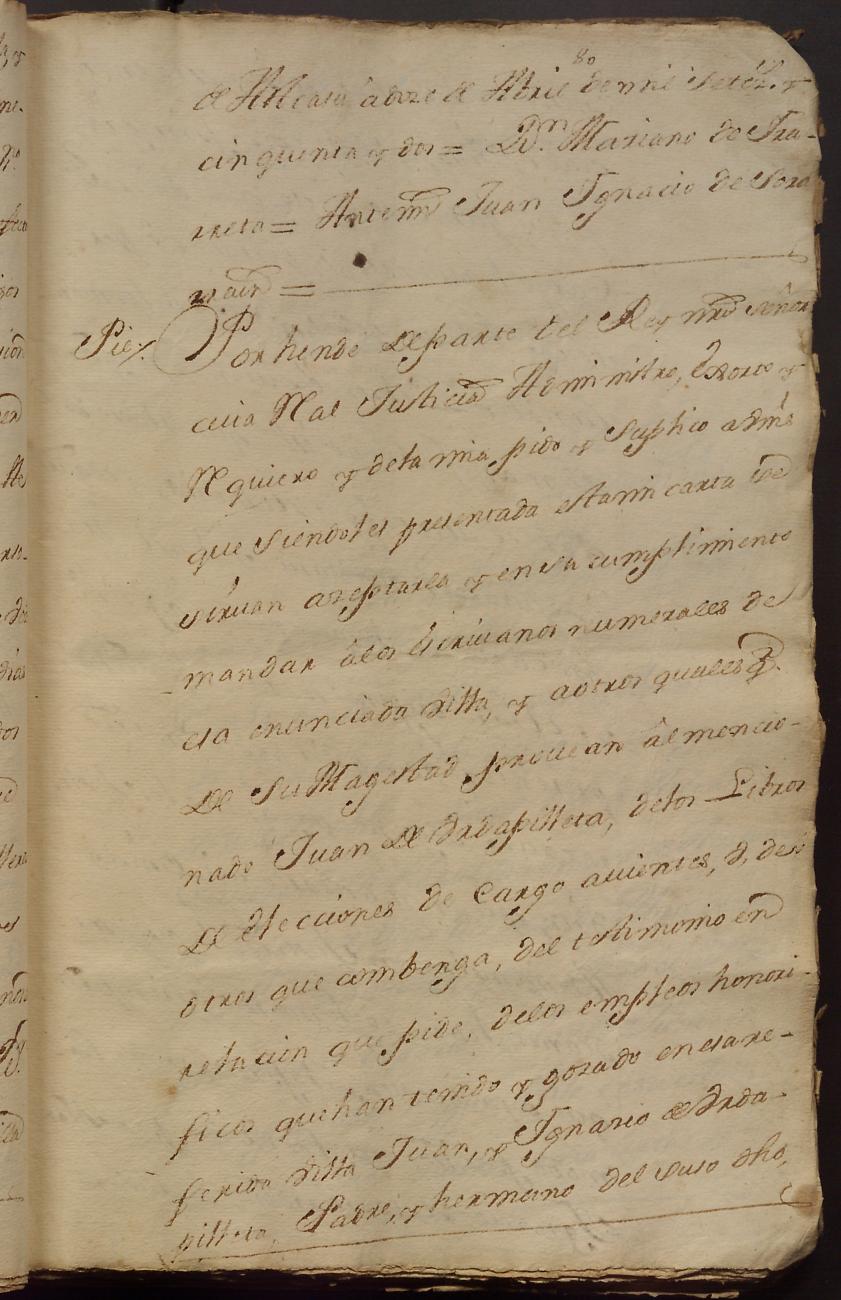 80
de Alcaldia à doze de Abril de mil setez.s y
cinquenta y dos = D.n Mariano de Fra-
rreta = Antemi Juan Ygnacio de Sora
rrain =
Pie/. Por hende de parte del Rey nro señor
cuia Real Justicia Administro, exsorto y
Requiero y de la mia pido y suplico a Vms
que siendoles presentada esta mi carta se
siruan azeptarla y en su cumplimiento
mandar à los Escriuanos numerales de
esa enunciada Villa, y a otros qualesq.
de Su Magestad prouean àl mencio-
nado Juan de Vrdapilleta, de los Libros
de Elecciones de Cargo auientes, ò, de
otros que combenga, del testimonio en
relacion que pide, delos empleos honori-
ficos que han tenido y gozado en esa re-
ferida Villa Juan, y Ygnacio de Vrda-
pilleta, Padre, y hermano del suso dho,